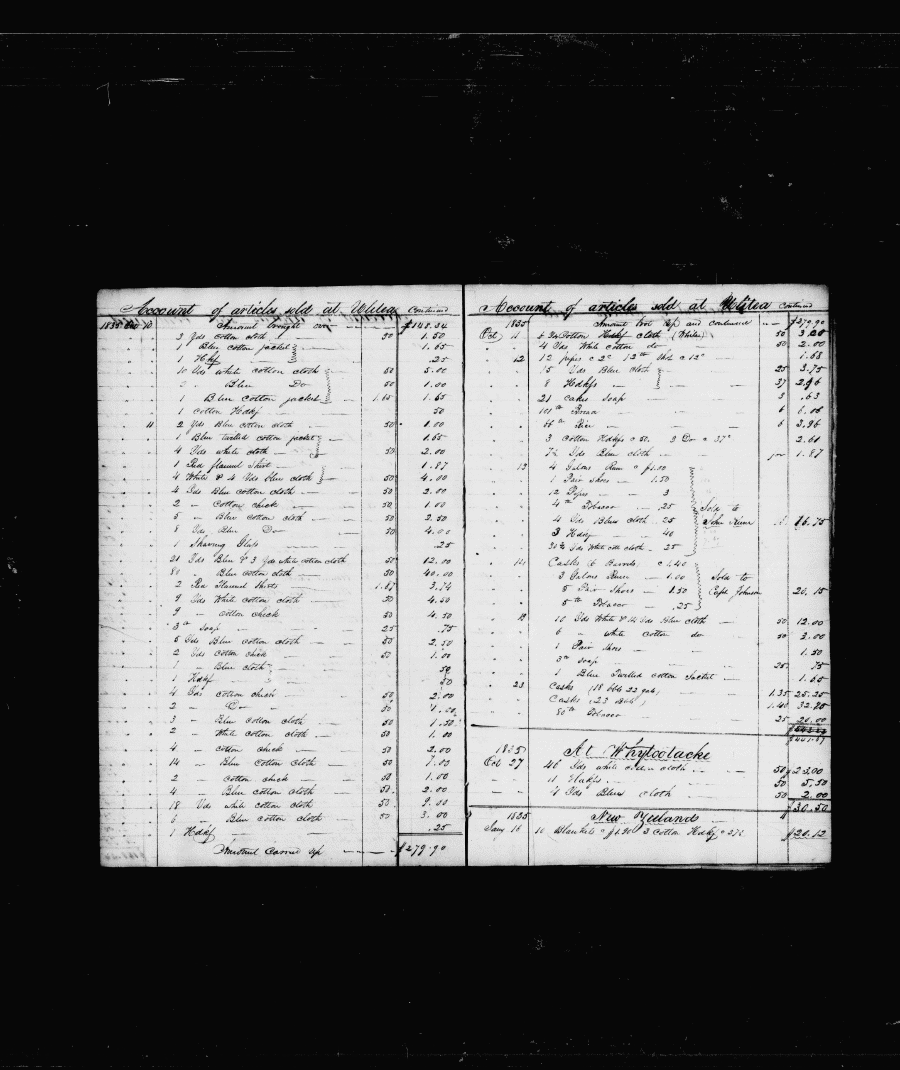 Account of articles sold at Ulitea Continued
1835 Oct 10 Amount brought over $148.34
3 Yds cotton cloth 50 1.50
1 Blue cotton jacket 1.65
1 Hdkf .25
10 Yds white cotton cloth 50 5.00
2 Blue Do 50 1.00
1 Blue cotton jacket 1.65 1.65
1 Cotton Hdkf 50
11 2 Yds Blue cotton cloth 50 1.00
1 Blue twilled cotton jacket 1.65
4 Yds white cloth 50 2.00
1 Red flannel Shirt 1.87
4 White & 4 Yds blue cloth 50 4.00
4 Yds Blue cotton cloth 50 2.00
2 " Cotton check 50 1.00
5 " Blue cotton cloth 50 2.50
8 Yds Blue Do 50 4.00
1 Shaving Glass .25
21 Yds Blue & 3 Yds white cotton cloth 50 12.00
80 " Blue cotton cloth 50 40.00
2 Red Flannel Shirts 1.87 3.74
9 Yds White cotton cloth 50 4.50
9 " cotton check 50 4.50
3 lb soap 25 .75
5 Yds Blue cotton cloth 50 2.50
2 Yds cotton check 50 1.00
1 " Blue cloth 50
1 Hdkf 50
4 Yds cotton check 50 2.00
2 " Do 50 1.00
3 " Blue cotton cloth 50 1.50
2 " White cotton cloth 50 1.00
4 " cotton check 50 2.00
14 " Blue cotton cloth 50 7.00
2 " cotton check 50 1.00
4 " Blue cotton cloth 50 2.00
18 Yds white cotton cloth 50 9.00
6 " Blue cotton cloth 50 3.00
1 Hdkf .25
Amount Carried up $279.90
Account of articles sold at Ulitea continued
1835 Amount brot up and continued $279.90
Oct 11 Cotton cloth (White) 50 3.00
4 Yds White cotton do 50 2.00
12 12 pipes 1.68
15 Yds Blue cloth 25 3.75
8 Hdkfs 37 2.96
21 cakes soap 3 .63
101 lb Bread 6 6.06
66 lb Rice 6 3.96
3 Cotton Hdkfs @ 50. 3 Do @ 37 2.61
7½ Yds Blue cloth 1.87
13 4 Galons Rum @ $1.00
1 Pair shoes 1.50
12 Pipes 3
4 lb Tobacco .25 Sold to
4 Yds Blue cloth .25 John 86.75
3 Hdkf 40
Yds White cotton cloth 25
14 Casks 6 Barrels @ 1.40
3 Galons Rum 1.00 Sold to
5 Pair Shoes 1.50 Capt Johnson 20.15
5 lb Tobacco .25
18 10 Yds White & 14 Yds blue cloth 50 12.00
6 " white cotton do 50 3.00
1 Pair shoes 1.50
3 lb soap 25 75
1 Blue Twilled cotton Jacket 1.65
23 Casks (18 bbls 22 gals) 1.35 25.25
Casks (23 Bbls) 1.40 32.20
80 lb Tobacco 25 20.00
$441.87
1835 At Whytootacke
Oct 27 46 Yds white cotton cloth 50 $23.00
11 Hdkfs 50 5.50
4 Yds Blue cloth 50 2.00
$30.50
1835 New Zeeland
Jany 16 10 Blankets @ $1.90 3 Cotton Hdkfs @ 37½ $20.12